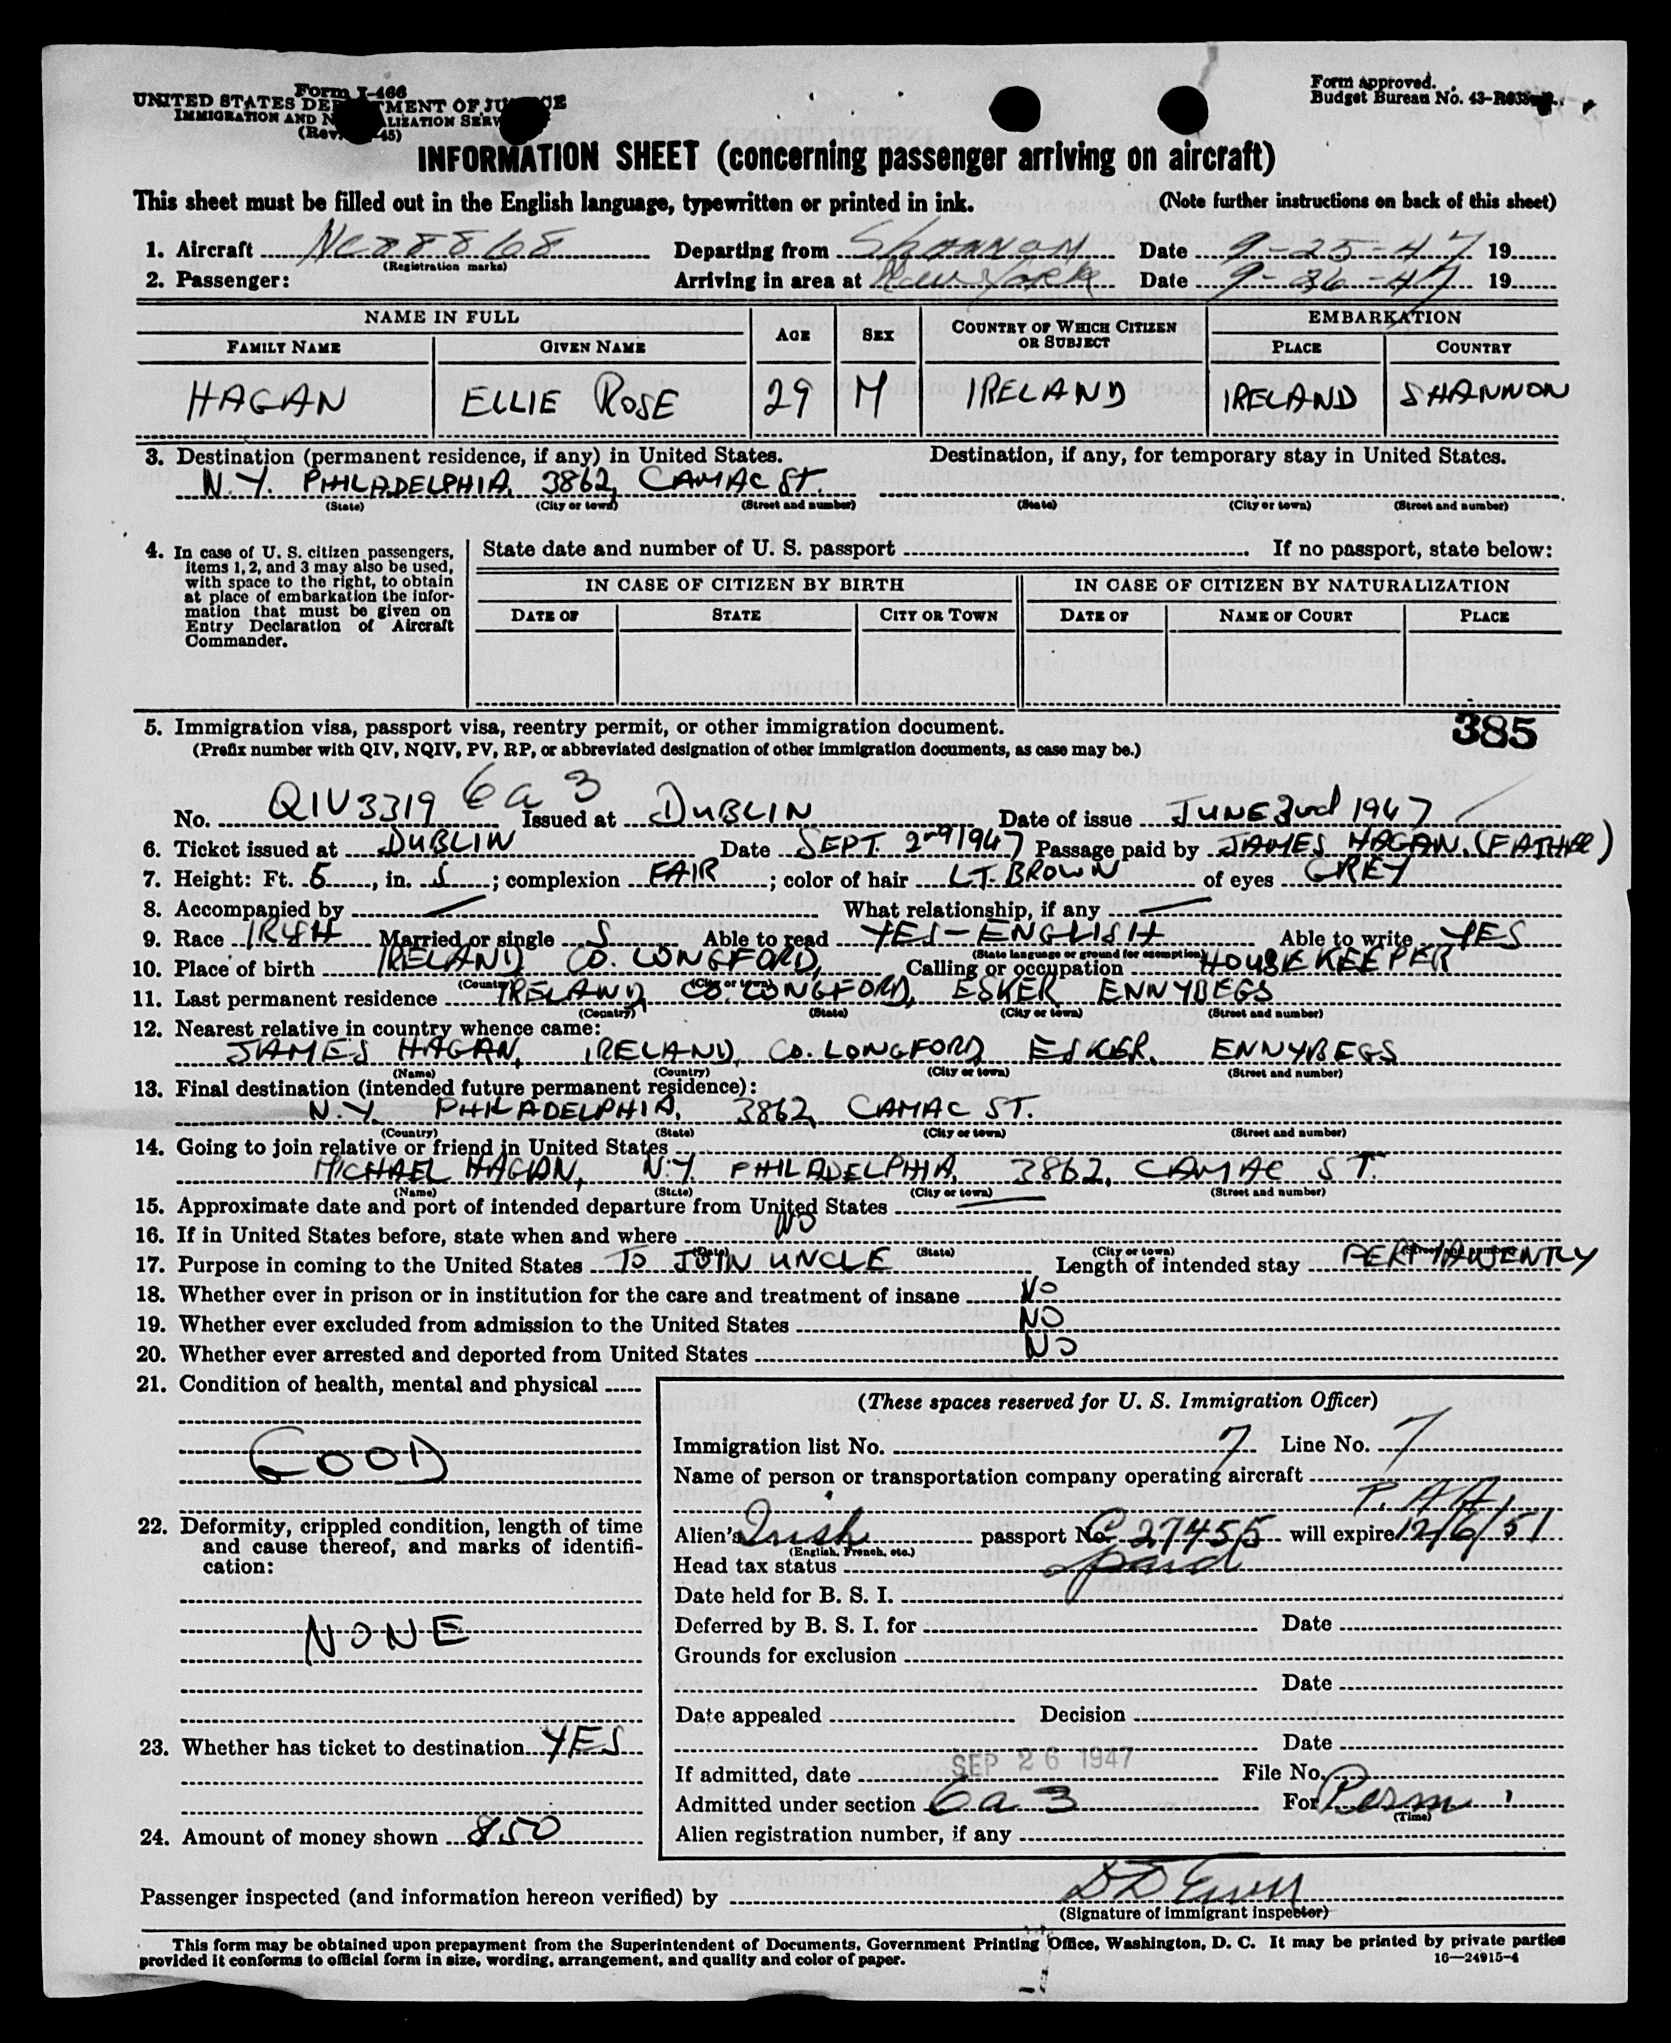 Form I-466
UNITED STATES DEPARTMENT OF JUSTICE
IMMIGRATION AND NATURALIZATION SERVICE
(Rev. 45)
Form approved.
Budget Bureau No. 43-
INFORMATION SHEET (concerning passenger arriving on aircraft)
This sheet must be filled out in the English language, typewritten or printed in ink. (Note further instructions on back of this sheet)
1. Aircraft NC88868 Departing from Shannon Date 9-25-47 19
(Registration marks)
2. Passenger: Arriving in area at New York Date 9-26-47 19
NAME IN FULL AGE SEX COUNTRY OF WHICH CITIZEN OR SUBJECT EMBARKATION
FAMILY NAME GIVEN NAME PLACE COUNTRY
HAGAN ELLIE ROSE 29 M IRELAND IRELAND SHANNON
3. Destination (permanent residence, if any) in United States. Destination, if any, for temporary stay in United States.
N.Y. PHILADELPHIA, 3862, CAMAC ST.
(State) (City or town) (Street and number) (State) (City or town) (Street and number)
4. In case of U. S. citizen passengers, items 1, 2, and 3 may also be used, with space to the right, to obtain at place of embarkation the information that must be given on Entry Declaration of Aircraft Commander.
State date and number of U. S. passport If no passport, state below:
IN CASE OF CITIZEN BY BIRTH IN CASE OF CITIZEN BY NATURALIZATION
DATE OF STATE CITY OR TOWN DATE OF NAME OF COURT PLACE
5. Immigration visa, passport visa, reentry permit, or other immigration document. 385
(Prefix number with QIV, NQIV, PV, RP, or abbreviated designation of other immigration documents, as case may be.)
No. QIV3319 6 a 3 Issued at DUBLIN Date of issue JUNE 2nd 1947
6. Ticket issued at DUBLIN Date SEPT. 2nd 1947 Passage paid by JAMES HAGAN. (FATHER)
7. Height: Ft. 5, in. 5; complexion FAIR; color of hair LT. BROWN of eyes GREY
8. Accompanied by — What relationship, if any —
9. Race IRISH Married or single S Able to read YES - ENGLISH Able to write YES
(State language or ground for exemption)
10. Place of birth IRELAND CO. LONGFORD, Calling or occupation HOUSEKEEPER
(Country) (City or town)
11. Last permanent residence IRELAND, CO. LONGFORD, ESKER ENNYBEGS
(Country) (State) (City or town) (Street and number)
12. Nearest relative in country whence came:
JAMES HAGAN, IRELAND, CO. LONGFORD ESKER, ENNYBEGS
(Name) (Country) (City or town) (Street and number)
13. Final destination (intended future permanent residence):
N.Y. PHILADELPHIA, 3862, CAMAC ST.
(Country) (State) (City or town) (Street and number)
14. Going to join relative or friend in United States
MICHAEL HAGAN, N.Y. PHILADELPHIA, 3862, CAMAC ST.
(Name) (State) (City or town) (Street and number)
15. Approximate date and port of intended departure from United States —
16. If in United States before, state when and where NO
(Date) (State) (City or town) (Street and number)
17. Purpose in coming to the United States TO JOIN UNCLE Length of intended stay PERMANENTLY
18. Whether ever in prison or in institution for the care and treatment of insane NO
19. Whether ever excluded from admission to the United States NO
20. Whether ever arrested and deported from United States NO
21. Condition of health, mental and physical
GOOD
22. Deformity, crippled condition, length of time and cause thereof, and marks of identification:
NONE
23. Whether has ticket to destination YES
24. Amount of money shown 850
(These spaces reserved for U. S. Immigration Officer)
Immigration list No. 7 Line No. 7
Name of person or transportation company operating aircraft
P.A.A.
Alien's Irish passport No. C 27455 will expire 12/6/51
(English, French, etc.)
Head tax status paid
Date held for B. S. I.
Deferred by B. S. I. for Date
Grounds for exclusion
Date
Date appealed Decision
Date
If admitted, date SEP 26 1947 File No.
Admitted under section 6 a 3 For Perm
(Time)
Alien registration number, if any
Passenger inspected (and information hereon verified) by
(Signature of immigrant inspector)
This form may be obtained upon prepayment from the Superintendent of Documents, Government Printing Office, Washington, D. C. It may be printed by private parties
provided it conforms to official form in size, wording, arrangement, and quality and color of paper. 16—24915-4